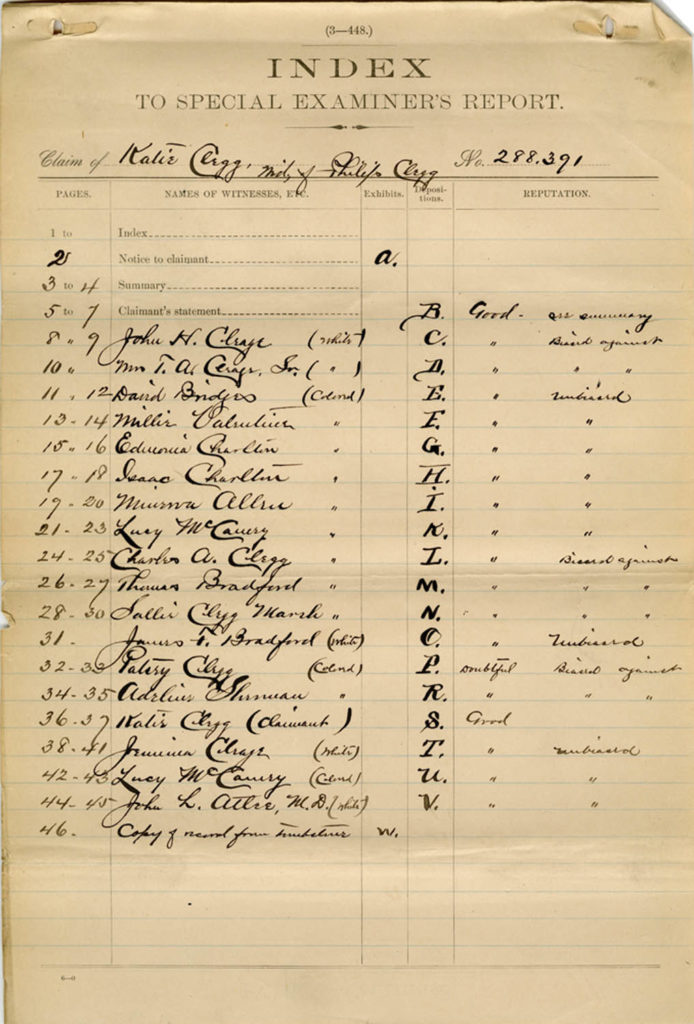 (3—448.)
INDEX
TO SPECIAL EXAMINER'S REPORT.
Claim of Katie Clegg, Wid. of Philip Clegg No. 288.391
PAGES. NAMES OF WITNESSES, ETC. Exhibits. Depositions. REPUTATION.
1 to Index
2 Notice to claimant a.
3 to 4 Summary
5 to 7 Claimant's statement B. Good - see summary
8 " 9 John H. Cleage (White) C. " Biased against
10 " Mrs T. A. Cleage, Sr. ( " ) D. " " "
11 " 12 David Bridges (Colored) E. " unbiased
13 - 14 Millie " F. " "
15 " 16 Edmonia Charlton " G. " "
17 " 18 Isaac Charlton " H. " "
19 - 20 Minerva Allen " I. " "
21 - 23 Lucy McCaury " K. " "
24 - 25 Charles A. Clegg " L. " Biased against
26 - 27 Thomas Bradford " M. " " "
28 - 30 Sallie Clegg Marsh " N. " " "
31 - James F. Bradford (White) O. " Unbiased
32 - 33 Patsy Clegg (Colored) P. Doubtful Biased against
34 - 35 Adeline Sherman " R. " " "
36 - 37 Katie Clegg (Claimant) S. Good
38 - 41 Jemima Cleage (White) T. " unbiased
42 - 43 Lucy McCaury (Colored) U. " "
44 - 45 John L. Atlee, M.D. (White) V. " "
46 - Copy of record from W.
6—0